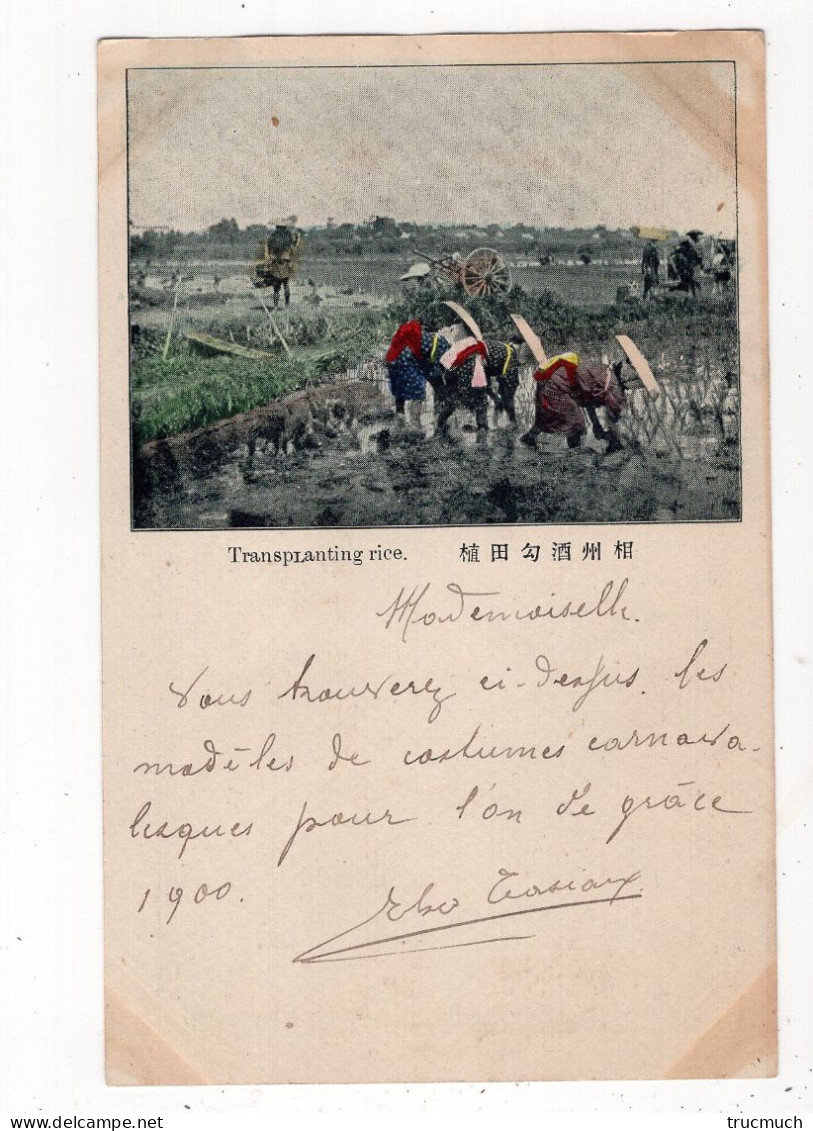 Transplanting rice. 植田勾酒州相
Mademoiselle.
Vous trouverez ci-dessus, les
modèles de costumes carnava-
lesques pour l'an de grâce
1900.
trucmuch